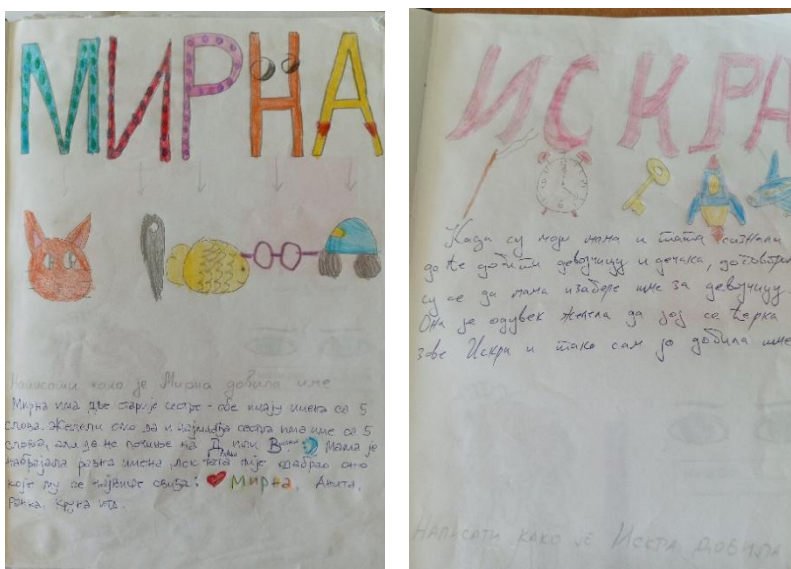 МИРНА
Написати како је Мирна добила име
Мирна има две старије сестре - обе имају имена са 5
слова. Желели смо да и најмлађа сестра има име са 5
слова, али да не почиње на Д или В. Мама је
набрајала разна имена, док тата није одабрао оно
које му се највише свиђа: Мирна, Анита,
Ронка, Круна итд.
ИСКРА
Када су моји мама и тата сазнали
да ће добити девојчицу и дечака, договорили
су се да мама изабере име за девојчицу.
Она је одувек желела да јој се ћерка
зове Искра и тако сам ја добила име
НАПИСАТИ КАКО ЈЕ ИСКРА ДОБИЛА